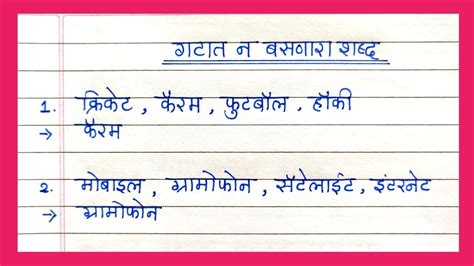 गटात न बसणारा शब्द
1. क्रिकेट , कॅरम , फुटबॉल , हॉकी
→ कॅरम
2. मोबाइल , ग्रामोफोन , सॅटेलाईट , इंटरनेट
→ ग्रामोफोन